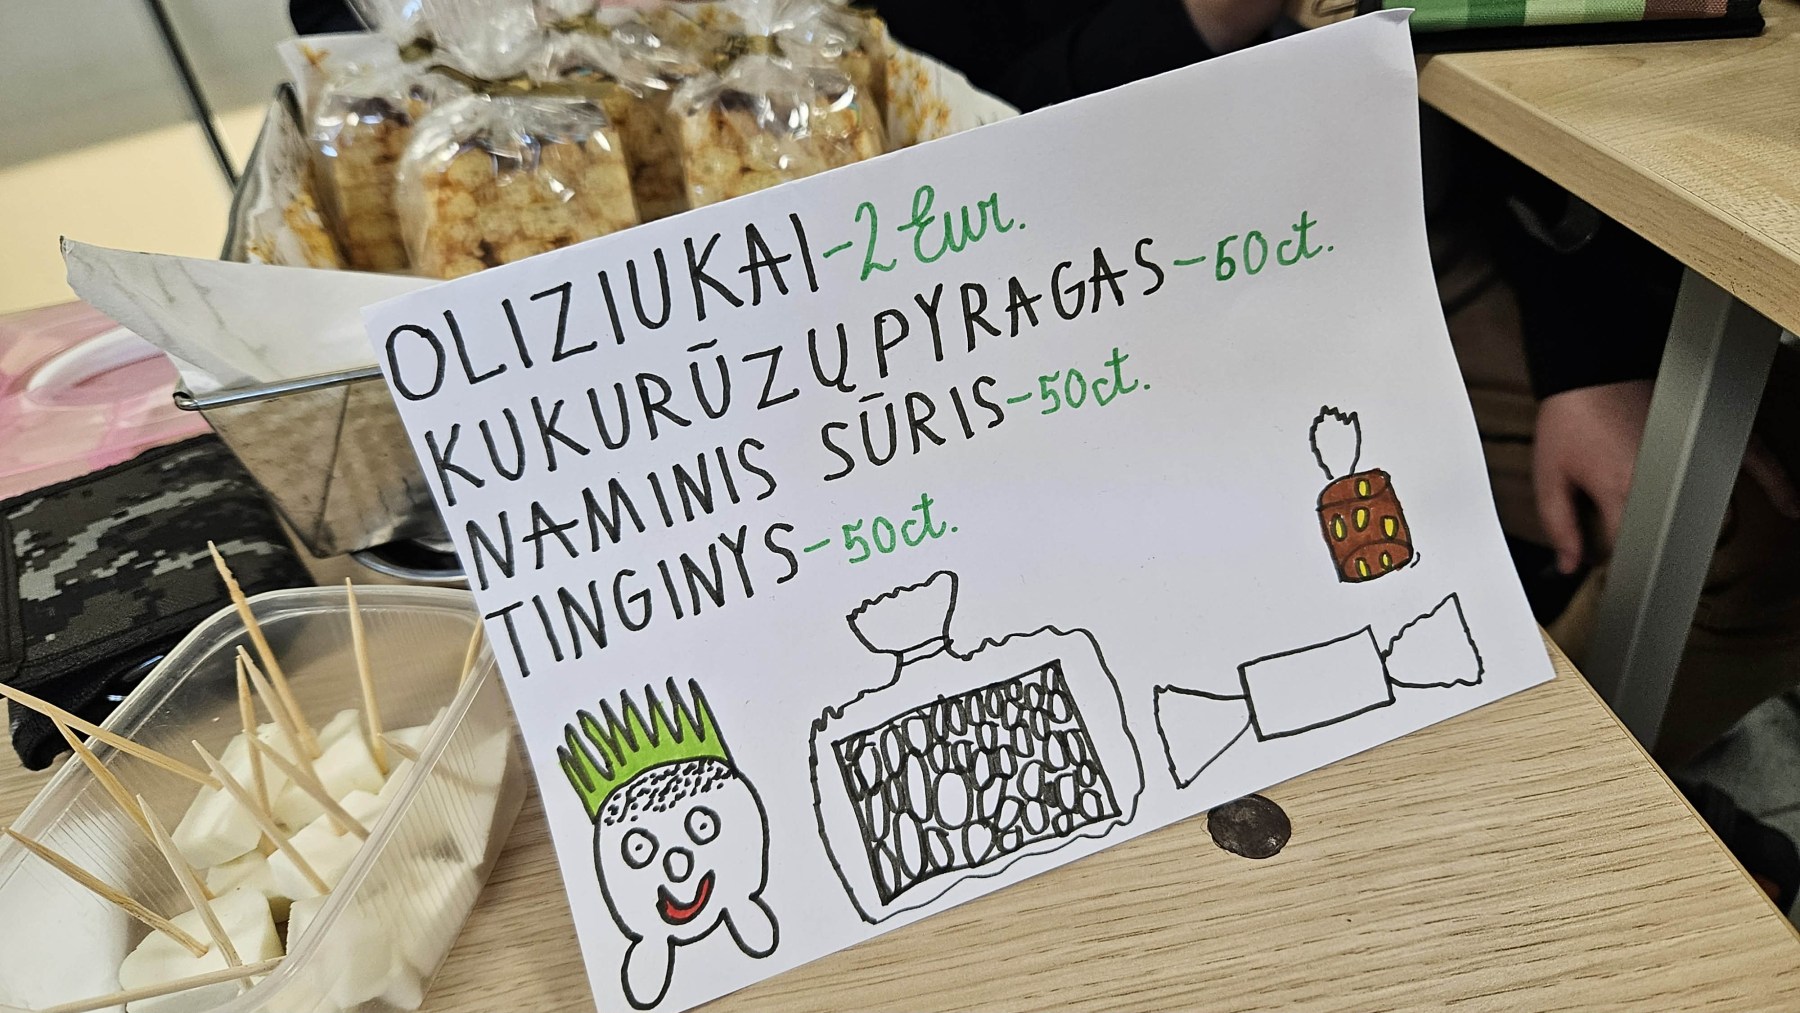 OLIZIUKAI-2 Eur.
KUKURŪZŲ PYRAGAS-50ct.
NAMINIS SŪRIS-50ct.
TINGINYS-50ct.